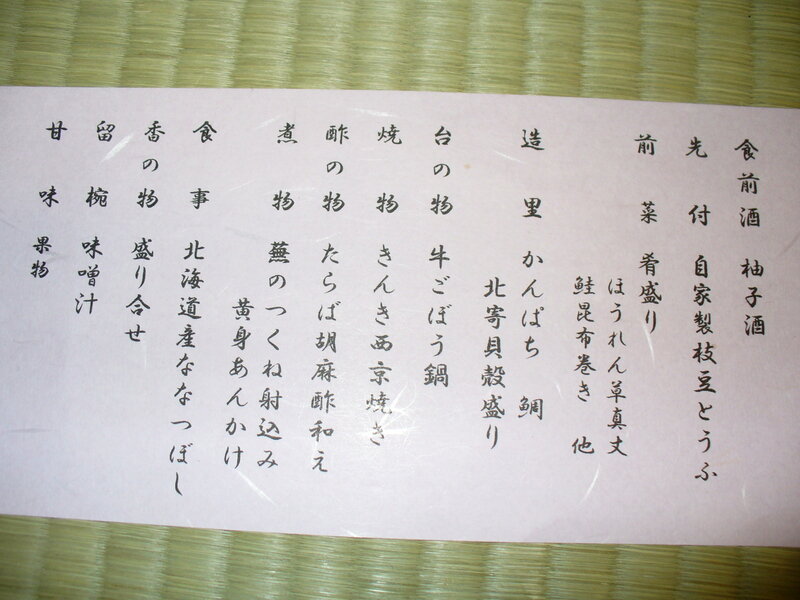 食前酒 柚子酒
先付 自家製枝豆とうふ
前菜 肴盛り
ほうれん草真丈
鮭昆布巻き 他
造里 かんぱち 鯛
北寄貝殻盛り
台の物 牛ごぼう鍋
焼物 きんき西京焼き
酢の物 たらば胡麻酢和え
煮物 蕪のつくね射込み
黄身あんかけ
食事 北海道産ななつぼし
香の物 盛り合せ
留椀 味噌汁
甘味 果物